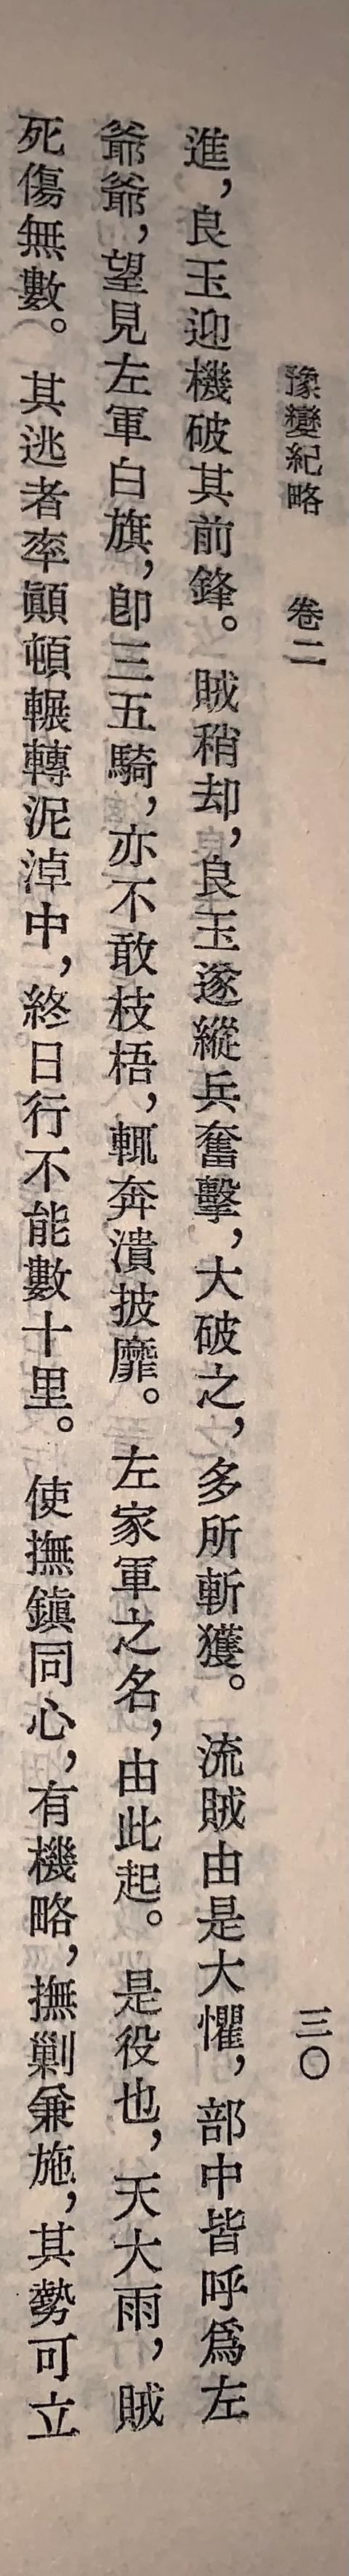 豫變紀略　卷二
三〇
進，良玉迎機破其前鋒。賊稍却，良玉遂縱兵奮擊，大破之，多所斬獲。流賊由是大懼，部中皆呼爲左
爺爺，望見左軍白旗，卽三五騎，亦不敢枝梧，輒奔潰披靡。左家軍之名，由此起。是役也，天大雨，賊
死傷無數。其逃者率顚頓輾轉泥淖中，終日行不能數十里。使撫鎭同心，有機略，撫剿兼施，其勢可立